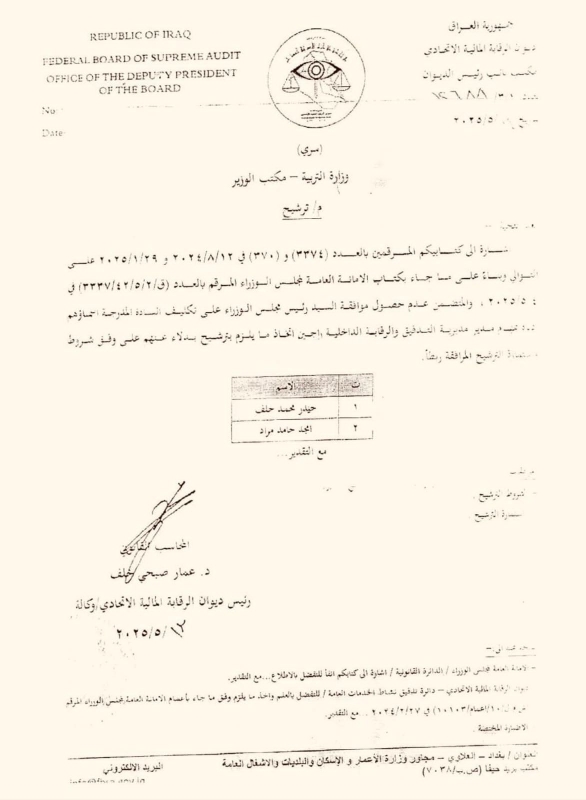 REPUBLIC OF IRAQ
FEDERAL BOARD OF SUPREME AUDIT
OFFICE OF THE DEPUTY PRESIDENT
OF THE BOARD
No:
Date:
جمهورية العراق
ديوان الرقابة المالية الاتحادي
مكتب نائب رئيس الديوان
٢٠٢٥/٥/
(سري)
وزارة التربية – مكتب الوزير
م/ ترشيح
الى كتابيكم المرقمين بالعدد (٣٣٧٤) و (٣٧٠) في ٢٠٢٤/٨/١٢ و ٢٠٢٥/١/٢٩ على
التوالي وبناءً على ما جاء بكتاب الامانة العامة لمجلس الوزراء المرقم بالعدد (ق/٣٣٣٧/٤٢/٥/٢) في
٢٠٢٥/٥/٤ ، والمتضمن عدم حصول موافقة السيد رئيس مجلس الوزراء على تكليف السادة المدرجة اسماؤهم
مدير مديرية التدقيق والرقابة الداخلية راجين اتخاذ ما يلزم بترشيح بدلاء عنهم على وفق شروط
الترشيح المرافقة ربطاً.
ت الاسم
١ حيدر محمد خلف
٢ امجد حامد مراد
مع التقدير...
شروط الترشيح .
الترشيح
المحاسب القانوني
د. عمار صبحي خلف
رئيس ديوان الرقابة المالية الاتحادي/وكالة
٢٠٢٥/٥/١٣
الامانة العامة لمجلس الوزراء / الدائرة القانونية / اشارة الى كتابكم انفاً للتفضل بالاطلاع...مع التقدير.
ديوان الرقابة المالية الاتحادي – دائرة تدقيق نشاط الخدمات العامة / للتفضل بالعلم واتخاذ ما يلزم وفق ما جاء بأعمام الامانة العامة لمجلس الوزراء المرقم
في ٢٠٢٤/٢/٢٧ ...مع التقدير.
الاضبارة المختصة .
العنوان / بغداد – العلاوي – مجاور وزارة الأعمار و الإسكان والبلديات والاشغال العامة
مكتب بريد حيفا (ص.ب/٧٠٣٨)
البريد الالكتروني